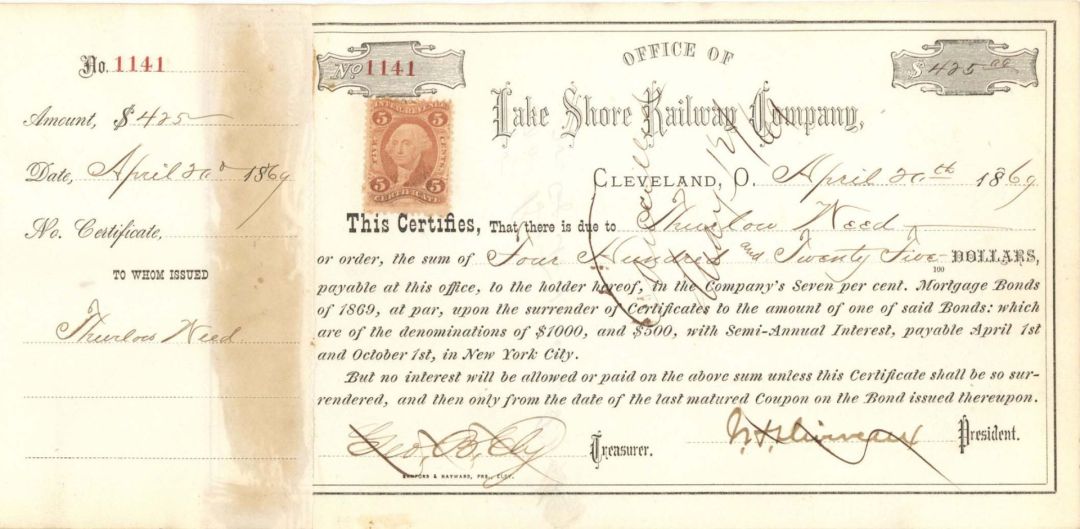 No. 1141
Amount, $ 425
Date, April 20th 1869
No. Certificate,
TO WHOM ISSUED
Thurlow Weed
No 1141
OFFICE OF
$ 425 00
Lake Shore Railway Company,
INTER. REVENUE
5 5
FIVE CENTS
5 5
CERTIFICATE
CLEVELAND, O. April 20th 1869
This Certifies, That there is due to Thurlow Weed
or order, the sum of Four Hundred and Twenty Five 100 DOLLARS,
payable at this office, to the holder hereof, in the Company's Seven per cent. Mortgage Bonds
of 1869, at par, upon the surrender of Certificates to the amount of one of said Bonds: which
are of the denominations of $1000, and $500, with Semi-Annual Interest, payable April 1st
and October 1st, in New York City.
But no interest will be allowed or paid on the above sum unless this Certificate shall be so sur-
rendered, and then only from the date of the last matured Coupon on the Bond issued thereupon.
Cancelled
May 12/69
Geo. B. Ely Treasurer.
President.
SANFORD & HAYWARD, PRS., CLEV.